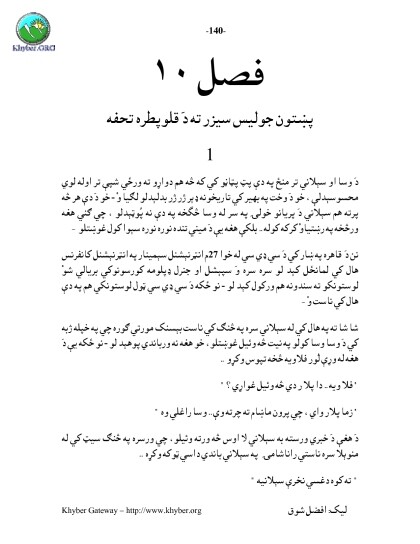 -140-
Khyber.ORG
فصل ١٠
پښتون جوليس سيزر ته دَ قلو پطره تحفه
1
دَ وسا او سبلاني تر منځ په دې پټ پټاڼو کي که څه هم دواړو ته ورځي شپې تر اوله لوي
محسوسېدلې ، خو دَ وخت په بهير کي تاريخونه ډېر ژر ژر بدلېدلو لګيا وُ - خو دَ دې هر څه
پرته هم سبلاني دَ پريانو خولۍ په سر له وسا څګخه په دې نه پُوټېدلو ، چي ګني هغه
ورڅخه په رښتيا وُکرکه کوله . بلکي هغه يې دَ ميني تنده نوره نوره سېوا کول غوښتلو -
نن دَ قاهره په ښار کي دَ سي ډي سي له خوا 27م انټرنېشنل سېمينار په انټرنېشنل کانفرنس
هال کي لمانځل کېد لو سره سره وَ سپېشل او جنرل ډپلومه کورسونو کي بريالي شوُ
لوستونکو ته سندونه هم ورکول کېد لو - نو ځکه دَ سي ډي سي ټول لوستونکي هم په دې
هال کي ناست وُ -
شا شا ته په هال کي له سبلاني سره په څنګ کي ناست بېسنک مورتي ګوره چي په خپله ژبه
کي دَ وسا وسا کولو په نيت څه وئيل غوښتلو ، خو هغه نه ورباندي پوهېد لو - نو ځکه يې دَ
هغه له ورې لور فلاويه څخه تپوس وکړو ..
" فلاويه .. دا پلار دي څه وئيل غواړي ؟ "
" زما پلار وايي ، چي پرون ماښام ته چرته وې .. وسا راغلې وه "
دَ هغې دَ خبرې ورسته به سبلاني لا اوس څه ورته وئيلو ، چي ورسره په څنګ سيټ کي له
منوېلا سره ناستې راناشامۍ په سبلاني باندي داسي ټوکه وکړه ..
" ته کوه دغسې نخرې سبلانيه "
Khyber Gateway – http://www.khyber.org
ليک: افضل شوق